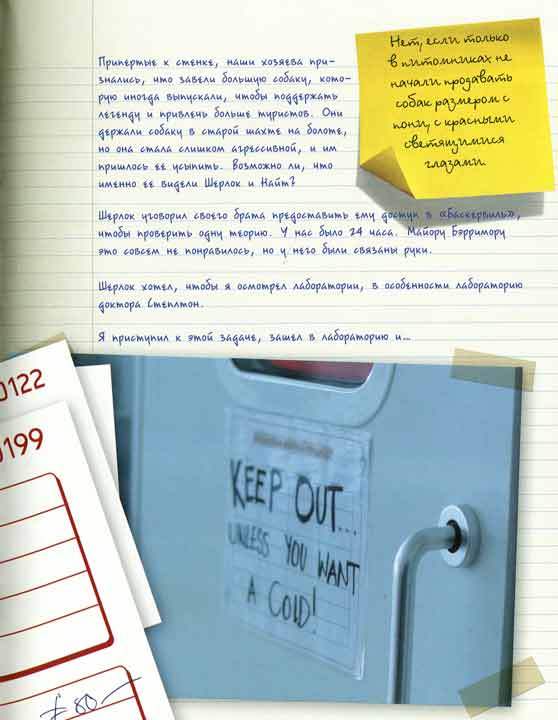 Припертые к стенке, наши хозяева при-
знались, что завели большую собаку, кото-
рую иногда выпускали, чтобы поддержать
легенду и привлечь больше туристов. Они
держали собаку в старой шахте на болоте,
но она стала слишком агрессивной, и им
пришлось ее усыпить. Возможно ли, что
именно ее видели Шерлок и Найт?
Нет, если только
в питомниках не
начали продавать
собак размером с
пони, с красными
светящимися
глазами.
Шерлок уговорил своего брата предоставить ему доступ в «Баскервиль»,
чтобы проверить одну теорию. У нас было 24 часа. Майору Бэрримору
это совсем не понравилось, но у него были связаны руки.
Шерлок хотел, чтобы я осмотрел лаборатории, в особенности лабораторию
доктора Стэплтон.
Я приступил к этой задаче, зашел в лабораторию и...
0122
0199
KEEP OUT...
UNLESS YOU WANT
A COLD!
£80—